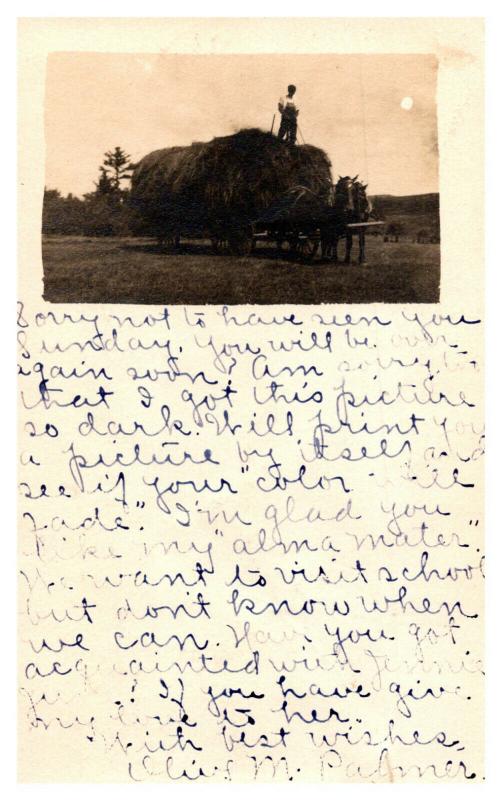 Sorry not to have seen you
Sunday. You will be over
again soon? Am sorry too
that I got this picture
so dark. Will print you
a picture by itself and
see if your "color will
fade". I'm glad you
like my "alma mater".
We want to visit school
but don't know when
we can. Have you got
acquainted with Jennie
? If you have give
my love to her.
With best wishes,
Olive M. Palmer.